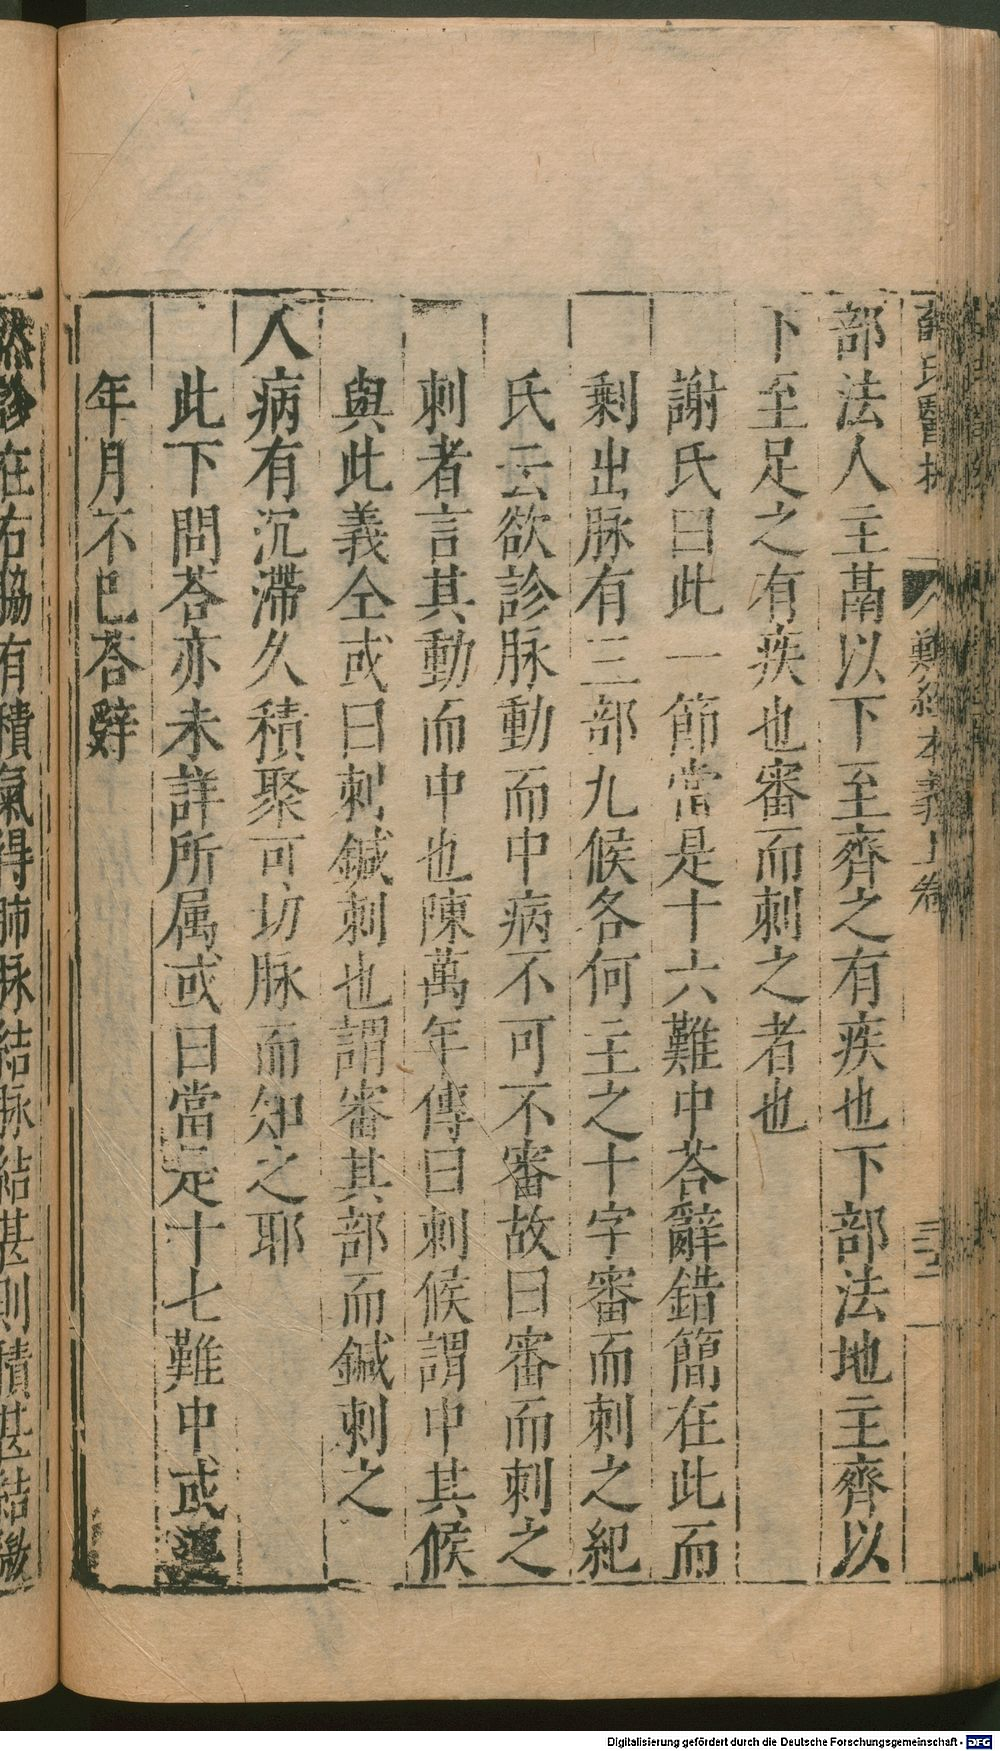 難經本義上卷
部法人主鬲以下至齊之有疾也下部法地主齊以
下至足之有疾也審而刺之者也
謝氏曰此一節當是十六難中荅辭錯簡在此而
剩出脉有三部九候各何主之十字審而刺之紀
氏云欲診脉動而中病不可不審故曰審而刺之
刺者言其動而中也陳萬年傳曰刺候謂中其候
與此義仝或曰刺鍼刺也謂審其部而鍼刺之
人病有沉滯久積聚可切脉而知之耶
此下問荅亦未詳所属或曰當是十七難中或
年月不已荅辭
然診在右脇有積氣得肺脉結脉結甚則積甚結微
Digitalisierung gefördert durch die Deutsche Forschungsgemeinschaft - DFG